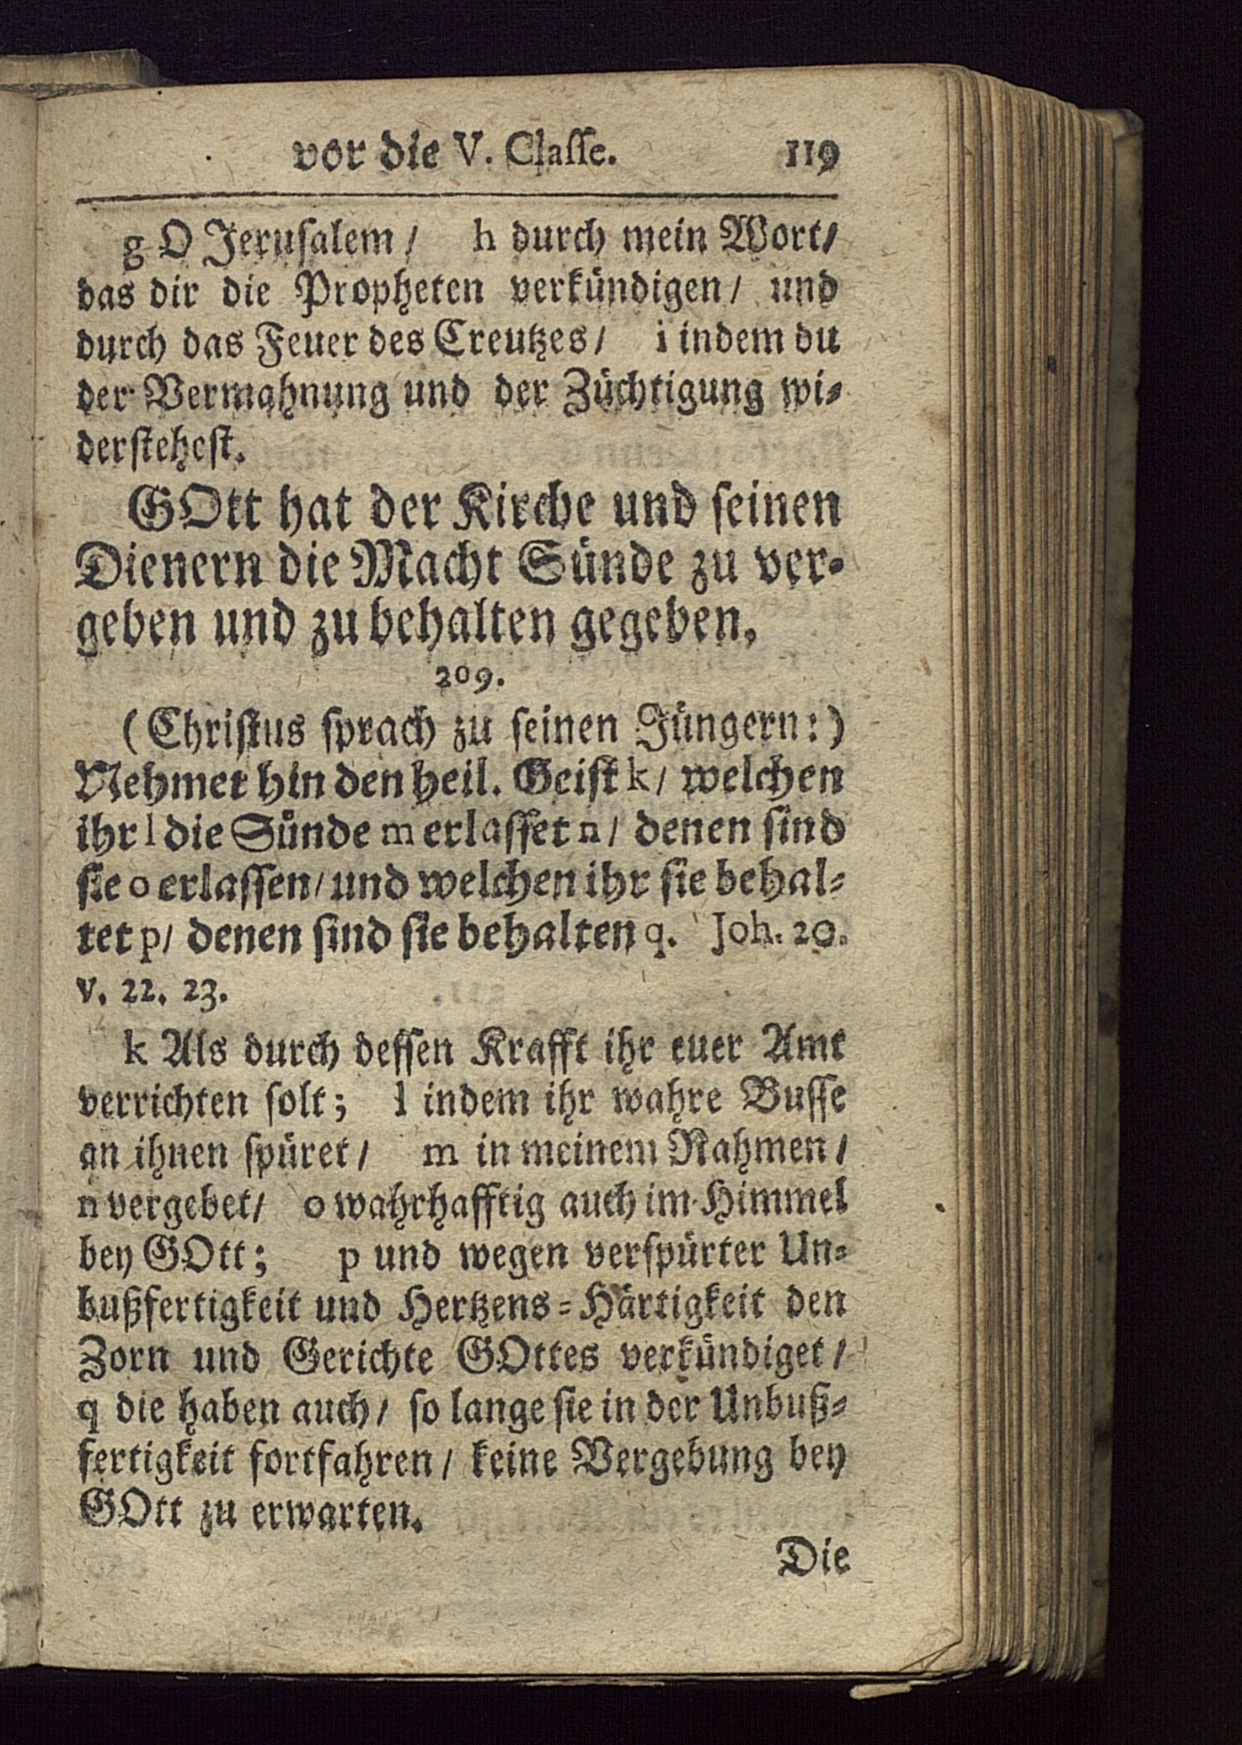 vor die V. Claſſe. 119
g O Jeruſalem / h durch mein Wort/
das dir die Propheten verkündigen / und
durch das Feuer des Creutzes / i indem du
der Vermahnung und der Züchtigung wi⸗
derſteheſt.
GOtt hat der Kirche und ſeinen
Dienern die Macht Sünde zu ver⸗
geben und zu behalten gegeben.
209.
(Chriſtus ſprach zu ſeinen Jüngern:)
Nehmet hin den heil. Geiſt k / welchen
ihr l die Sünde m erlaſſet n / denen ſind
ſie o erlaſſen / und welchen ihr ſie behal⸗
tet p / denen ſind ſie behalten q. Joh. 20.
v. 22. 23.
k Als durch deſſen Krafft ihr euer Amt
verrichten ſolt; l indem ihr wahre Buſſe
an ihnen ſpüret / m in meinem Nahmen /
n vergebet / o wahrhafftig auch im Himmel
bey GOtt; p und wegen verſpürter Un⸗
bußfertigkeit und Hertzens⸗Härtigkeit den
Zorn und Gerichte GOttes verkündiget /
q die haben auch / ſo lange ſie in der Unbuß⸗
fertigkeit fortfahren / keine Vergebung bey
GOtt zu erwarten.
Die